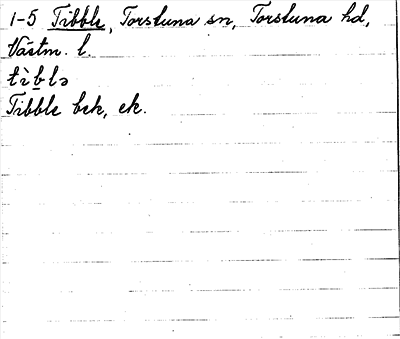 1-5 Tibble, Torstuna sn, Torstuna hd,
Västm. l.
tìb̲lə
Tibble bek, ek.